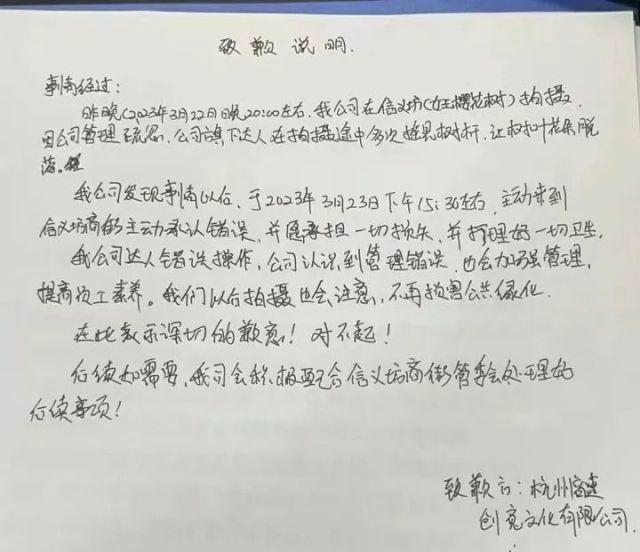 致歉说明.
事情经过:
昨晚(2023年3月22日晚20:00左右,我公司在信义坊(女王樱花树)拍摄.
因公司管理疏忽,公司旗下达人在拍摄途中多次摇晃树杆,让树叶花朵脱
落。
我公司发现事情以后,于2023年3月23日下午15:30左右,主动来到
信义坊商街主动承认错误,并愿承担一切损失,并打理好一切卫生.
我公司达人错误操作,公司认识到管理错误.也会加强管理,
提高员工素养。我们以后拍摄也会注意,不再损害公共绿化.
在此表示深切的歉意!对不起!
后续如需要,我司会积极配合信义坊商街管委会处理好
后续事项!
致歉方:杭州
创意文化有限公司.